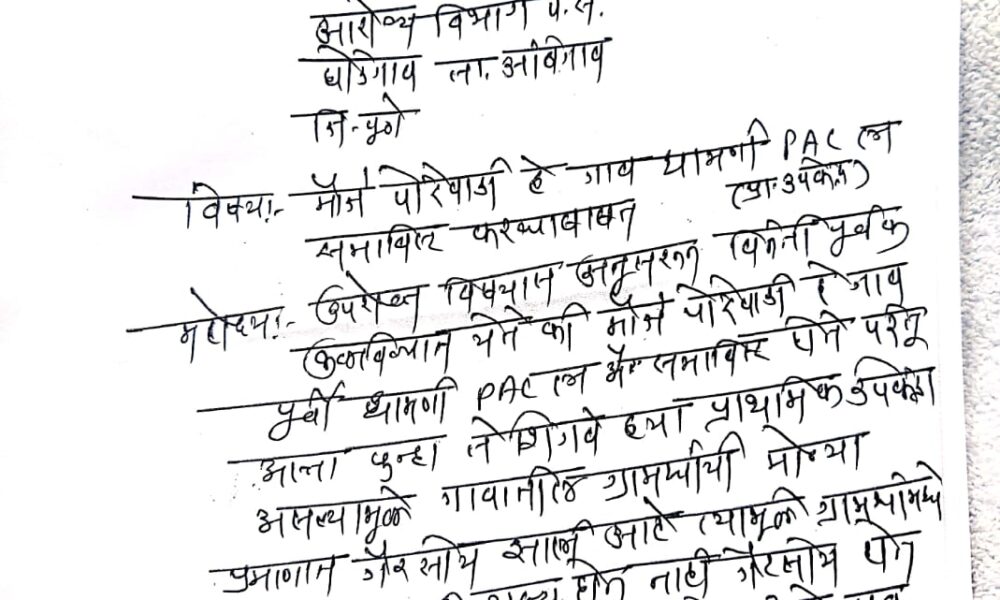 आरोग्य विभाग पं.स.
घोडेगाव ता. आंबेगाव
जि-पुणे
विषय:- मौजे पोंदेवाडी हे गाव धामणी PAC ला
(प्रा. उपकेंद्र)
समाविस्ट करण्याबाबत
महोदय:- उपरोक्त विषयास अनुसरून विनंती पूर्वक
कळविण्यात येते की मौजे पोंदेवाडी हे गाव
पूर्वी धामणी PAC ला समाविस्ट होते परंतू
आता पुन्हा ते शिंगवे ह्या प्राथमिक उपकेंद्रा
असल्यामूळे गावातील ग्रामस्थांची मोठ्या
प्रमाणात गैरसोय झाली आहे त्यामूळे ग्रामस्थांमध्ये
होत नाही गैरसोय होत